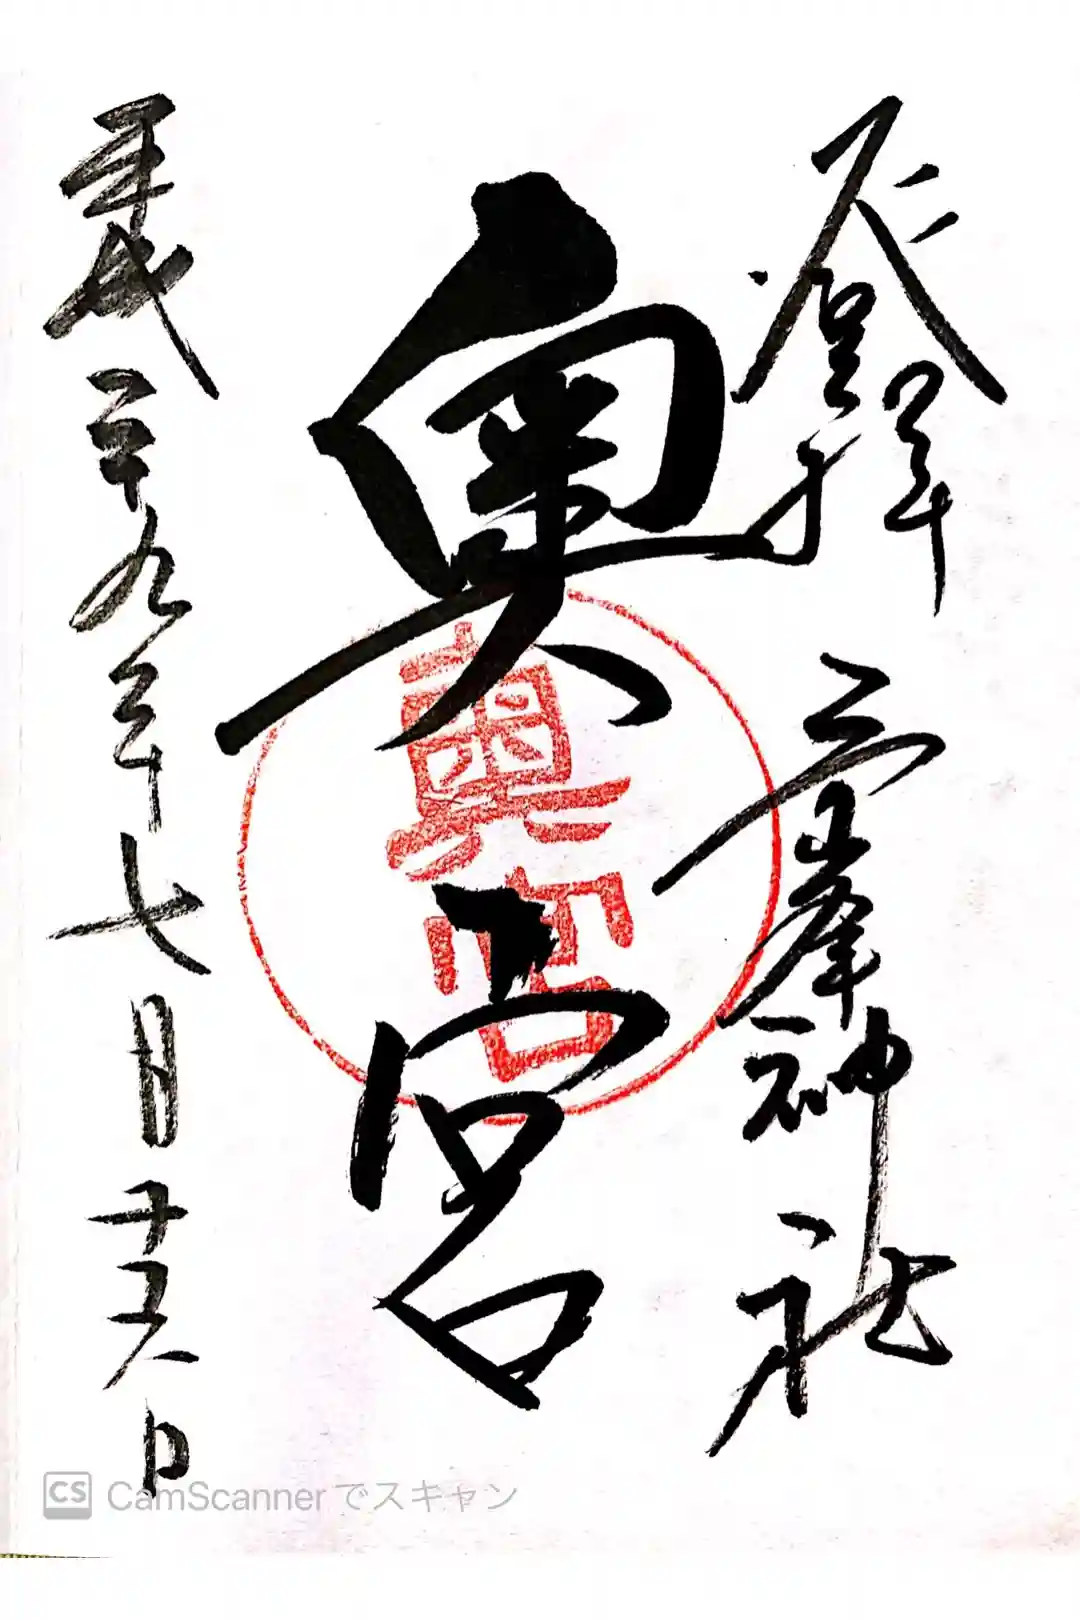 登拝
三峯神社
奥宮
奥宮
平成二十九年七月十六日
CS CamScannerでスキャン